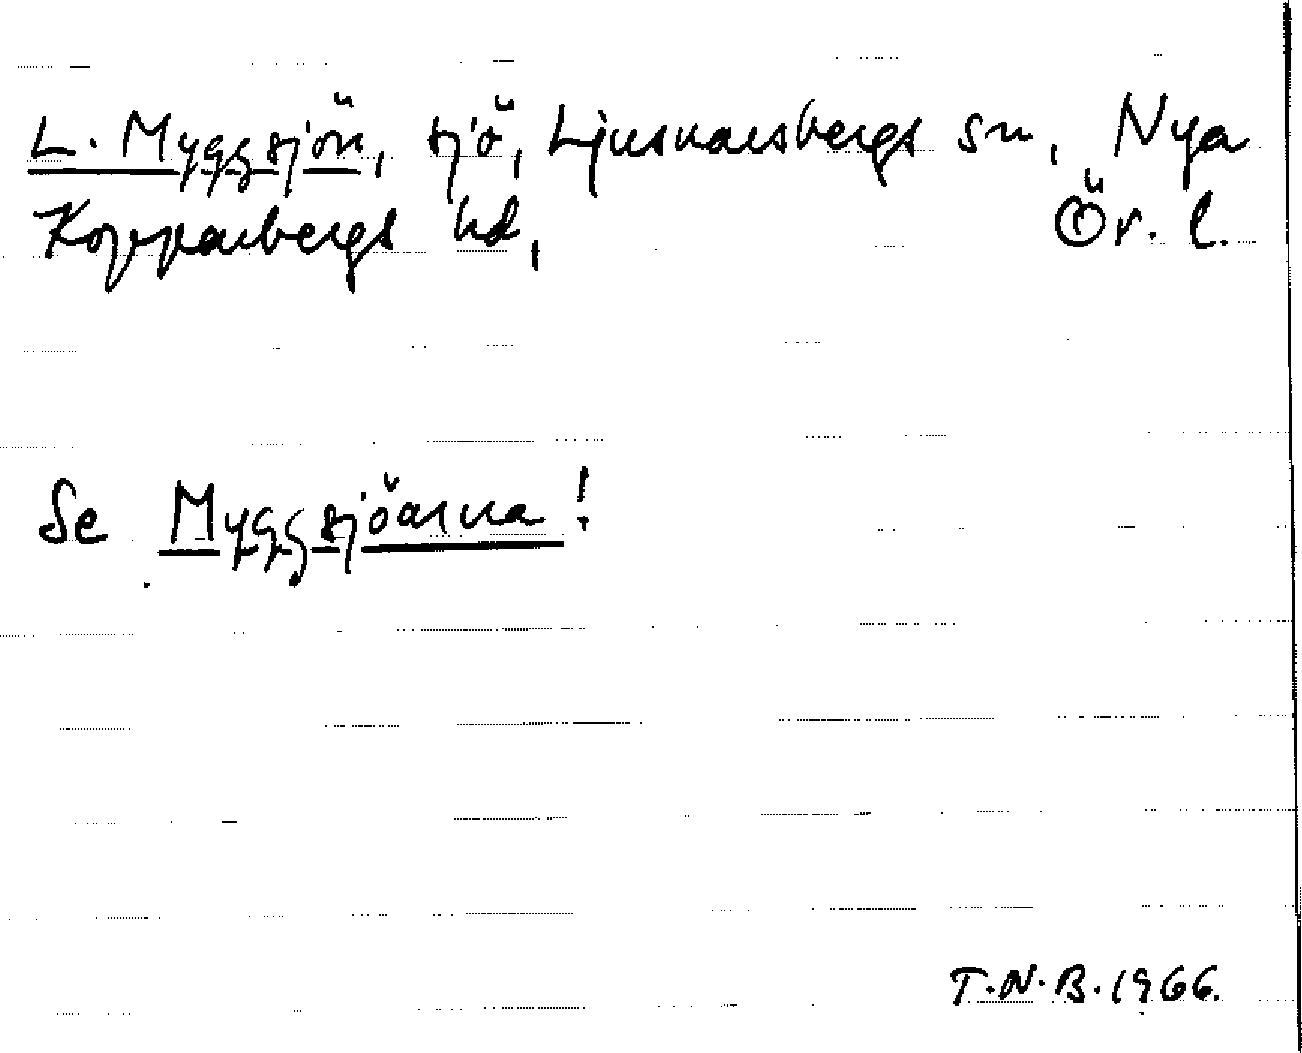 L. Myggsjön, sjö, Ljusnarsbergs sn, Nya
Kopparbergs hd, Ör. l.
Se Myggsjöarna!
T.N.B. 1966.